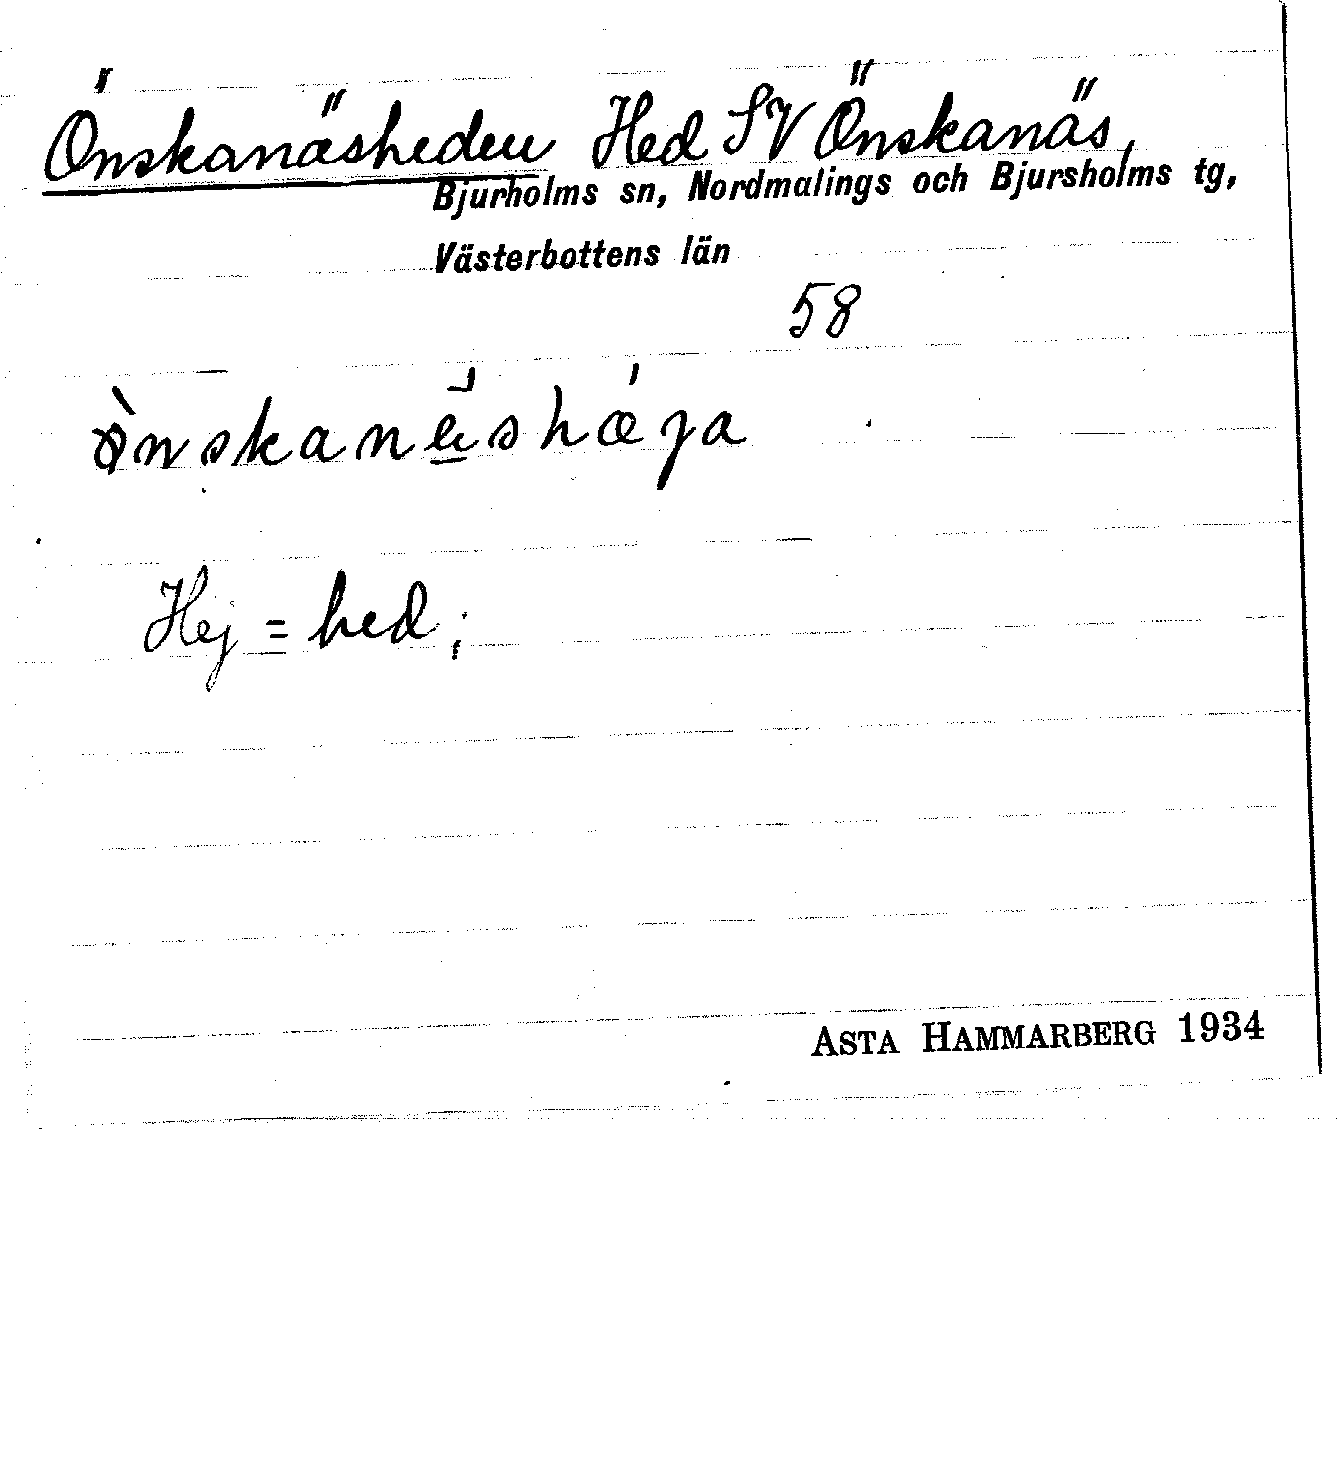 Önskanäsheden Hed SV Önskanäs,
Bjurholms sn, Nordmalings och Bjursholms tg,
Västerbottens län
58
Hej = hed;
ASTA HAMMARBERG 1934